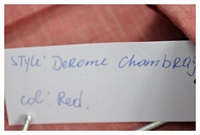 STYLE: Derome Chambray
Col: Red.